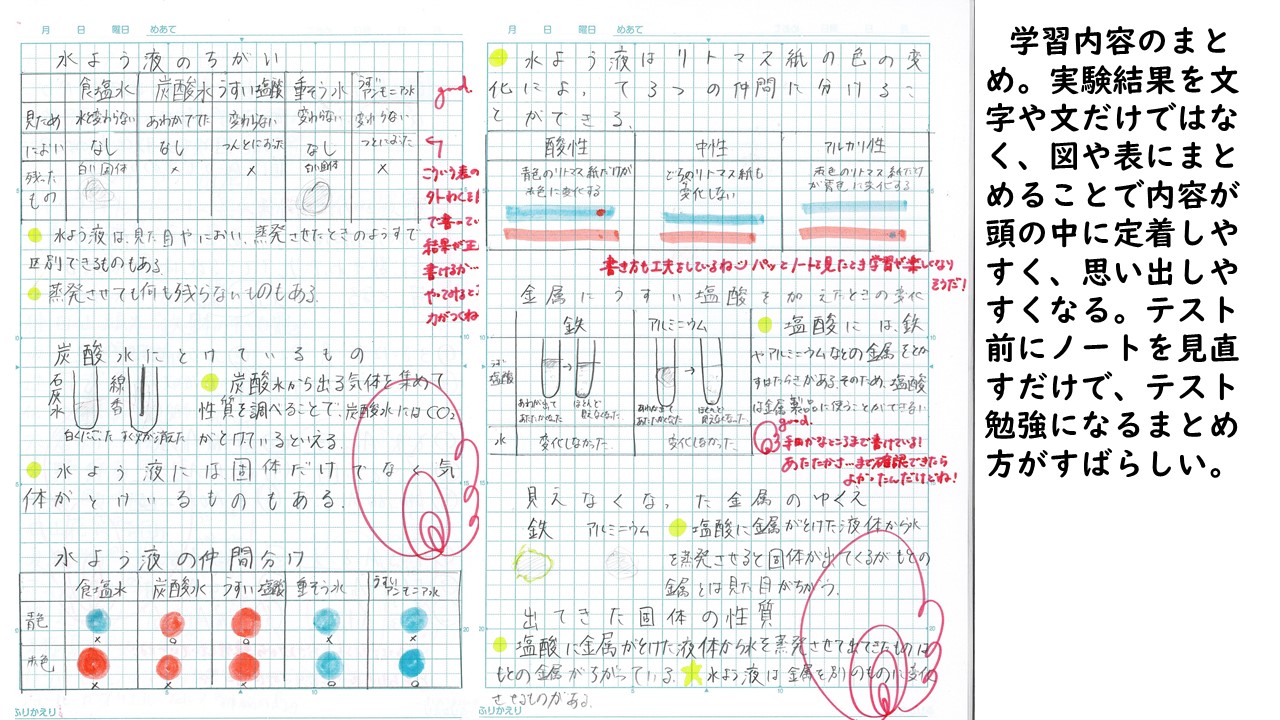 月 日 曜日 めあて
水よう液のちがい
食塩水 炭酸水 うすい塩酸 重そう水 うすいアンモニア水
見ため 水と変わらない あわがでてた 変わらない 変わらない 変わらない
におい なし なし つんとにおった なし つんとにおった
残ったもの 白い固体 × × 白い固体 ×
good.
こういう表の
外わくを
で書って
結果が正
書けるか…
やってみると
力がつくね
水よう液は、見た目やにおい、蒸発させたときのようすで
区別できるものもある。
蒸発させても何も残らないものもある。
炭酸水にとけているもの
石灰水 線香
白くにごった すぐ火が消えた
炭酸水から出る気体を集めて
性質を調べることで、炭酸水にはCO₂
がとけているといえる。
水よう液には固体だけでなく気
体がとけているものもある。
水よう液の仲間分け
食塩水 炭酸水 うすい塩酸 重そう水 うすいアンモニア水
青色
× ○ ○ × ×
赤色
× × × ○ ○
ふりかえり
月 日 曜日 めあて
水よう液はリトマス紙の色の変
化によって3つの仲間に分けるこ
とができる。
酸性 中性 アルカリ性
青色のリトマス紙だけが赤色に変化する
どちらのリトマス紙も変化しない
赤色のリトマス紙だけが青色に変化する
書き方も工夫をしているね パッとノートを見たとき学習が楽しくなり
そうだ!
金属にうすい塩酸を加えたときの変化
鉄 アルミニウム
うすい塩酸
あわが出てあたたかくなった ほとんど見えなくなった
あわが出てあたたかくなった ほとんど見えなくなった
水 変化しなかった。 変化しなかった。
塩酸には、鉄
やアルミニウムなどの金属をとか
すはたらきがある。そのため、塩酸
は金属製品に使うことができない
good.
手回がなところまで書けている!
あたたかさ…まで確認できたら
よかったんだけどね!
見えなくなった金属のゆくえ
鉄 アルミニウム
塩酸に金属がとけた液体から水
を蒸発させると固体が出てくるがもとの
金属とは見た目がちがう。
出てきた固体の性質
塩酸に金属がとけた液体から水を蒸発させて出てきたものは
もとの金属がちがっている。水よう液は金属を別のものに変化
させるものがある。
ふりかえり
学習内容のまと
め。実験結果を文
字や文だけではな
く、図や表にまと
めることで内容が
頭の中に定着しや
すく、思い出しや
すくなる。テスト
前にノートを見直
すだけで、テスト
勉強になるまとめ
方がすばらしい。